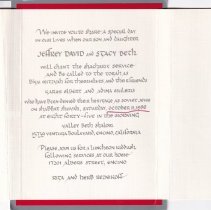 We invite you to share a special day
in our lives when our son and daughter
Jeffrey David and Stacy Beth
will chant the Shacharit Service
and be called to the Torah as
Bnai Mitzvah for themselves and the friends
Karen Elbert and Adina
who have been denied their heritage as Soviet Jews
on Shabbat Shuvah, Saturday, October 11, 1986
at eight forty-five in the morning
Valley Beth Shalom
15739 Ventura Boulevard, Encino, California
Please join us for a luncheon kiddush
following services at our home
17201 Albers Street, Encino
Rita and Herb